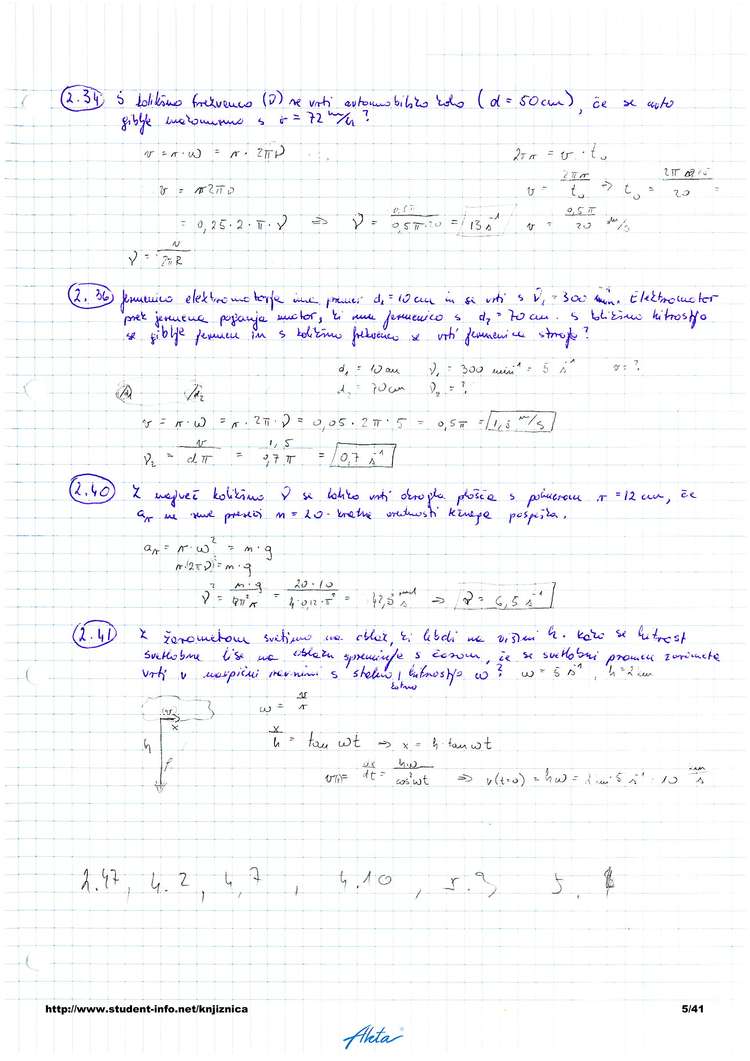 2.34 S kolikšno frekvenco (ν) se vrti avtomobilsko kolo (d = 50 cm), če se avto
giblje enakomerno s v = 72 km/h?
v = r·ω = r·2πν
2πr = v·t₀
v = r2πν
v = 2πr/t₀ ⇒ t₀ =
= 0,25·2·π·ν ⇒ ν = = 13 s⁻¹
ν = v/2πR
2.36 Jermenica elektromotorja ima premer d₁ = 10 cm in se vrti s ν₁ = 300 min⁻¹. Elektromotor
prek jermena poganja motor, ki ima jermenico s d₂ = 70 cm. S kolikšno hitrostjo
se giblje jermen in s kolikšno frekvenco se vrti jermenica stroja?
d₁ = 10 cm ν₁ = 300 min⁻¹ = 5 s⁻¹ v = ?
d₂ = 70 cm ν₂ = ?
v = r·ω = r·2π·ν = 0,05·2π·5 = 0,5π = 1,5 m/s
ν₂ = v/dπ = 1,5/0,7π = 0,7 s⁻¹
2.40 Z največ kolikšno ν se lahko vrti okrogla plošča s polmerom r = 12 cm, če
aᵣ ne sme preseči n = 20-kratne vrednosti težnega pospeška.
aᵣ = r·ω² = n·g
r(2πν)² = n·g
ν² = n·g/4π²r = 20·10/4·0,12·π² = ⇒ ν = 6,5 s⁻¹
2.41 Z žarometom svetimo na oblak, ki lebdi na višini h. Kako se hitrost
svetlobne lise na oblaku spreminja s časom, če se svetlobni pramen žarometa
vrti v navpični ravnini s stalno kotno hitrostjo ω? ω = 5 s⁻¹, h = 2 km
ω = v/r
x
h
x/h = tan ωt ⇒ x = h·tan ωt
v(t) = dx/dt = h·ω/cos²ωt ⇒ v(t=0) = hω = 2 km·5 s⁻¹ = 10 km/s
2.47, 4.2, 4,7, 4.10, 5.9 5.
http://www.student-info.net/knjiznica
5/41
Ahta